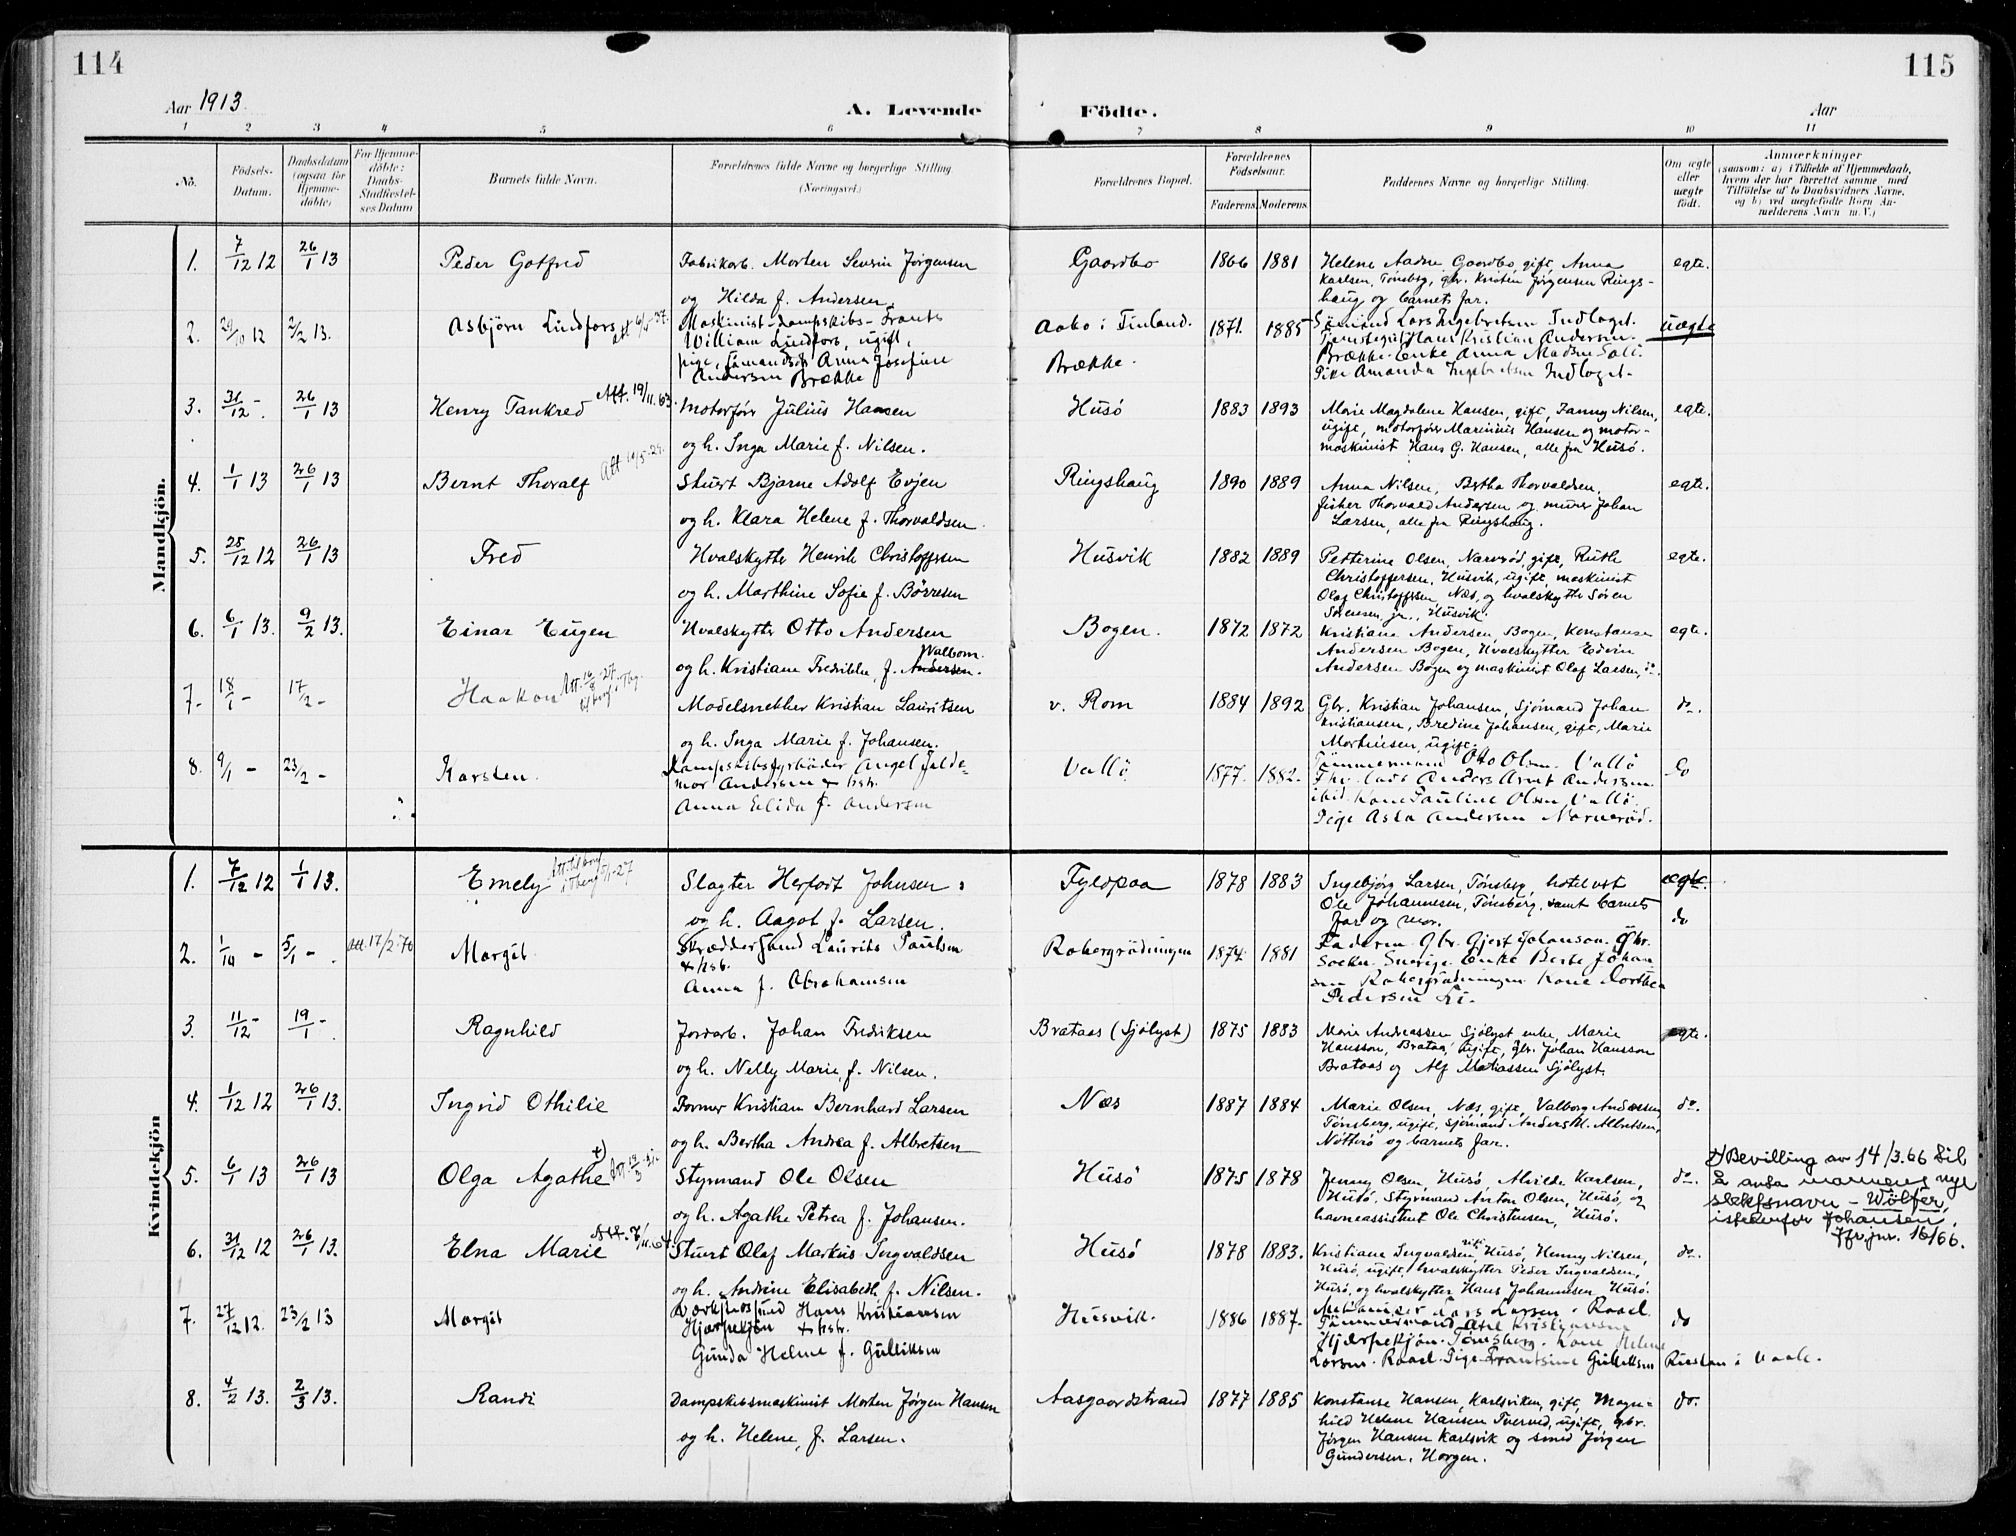 114
115
Aar 1913.
A. Levende
Födte.
Aar
1 2 3 4 5 6 7 8 9 10 11
No.
Födsels-Datum.
Daabsdatum (ogsaa for Hjemme-döbte)
For Hjemme-döbte: Daabs-Stadfæstel-ses Datum
Barnets fulde Navn.
Forældrenes fulde Navne og borgerlige Stilling. (Næringsvei.)
Forældrenes Bopæl.
Forældrenes Födselsaar.
Faderens
Moderens
Faddernes Navne og borgerlige Stilling.
Om ægte eller uægte født.
Anmærkninger
(saasom: a) i Tilfælde af Hjemmedaab,
hvem der har forrettet samme med
Tilföielse af to Daabsvidners Navne.
og b) ved uægtefödte Börn An-
melderens Navn m. V.)
Mandkjön.
1. 7/12 12 26/1 13 Peder Gotfred
Fabrikarb. Morten Sevrin Jørgensen
og Hilda f. Andersen.
Gaardbo 1866 1881
Helene Aadne Gaardbo, gift, Anna
Karlsen, Tönsberg, gbr. Kristen Jørgensen Rings-
haug og barnets far.
egte.
2. 29/10 12 2/2 13. Asbjörn Lindfors
Maskinist-dampskibs- Frants
William Lindfors, ugift,
pige, Sömandsdt Anna Josefine
Andersen Brække
Aabo i Finland.
Brække.
1871. 1885
Sömand Lars Ingebretsen Indlaget.
Hans Kristian Andersen.
Brække. Enke Anna Madsen
Pike Amanda Ingebretsen Indlaget.
uægte
3. 31/12 - 26/1 13 Henry Tankred Att. 19/11.63.
Motorfører Julius Hansen
og h. Inga Marie f. Nilsen.
Husö 1883 1893
Marie Magdalene Hansen, gift, Fanny Nilsen,
ugift, motorfører Marinius Hansen og motor-
maskinist Hans G. Hansen, alle fra Husö.
egte.
4. 1/1 13 26/1 13 Bernt Thoralf
Stuert Bjarne Adolf Evjen
og h. Klara Helene f. Thorvaldsen.
Ringshaug 1890 1889
Anna Nilsen, Bertha Thorvaldsen,
fisker Thorvald Andersen og murer Johan
Larsen, alle fra Ringshaug.
egte.
5. 25/12 12 26/1 13 Fred
Hvalskytter Henrik Christoffersen
og h. Marthine Sofie f. Börresen
Husvik 1882 1889
Petterine Olsen, Narverød, gift, Ruth
Christoffersen, Husvik, ugift, maskinist
Olaf Christoffersen, Næs, og hvalskytter Sören
Sörensen, jr., Husvik.
egte.
6. 6/1 13. 9/2 13. Einar Eugen
Hvalskytter Otto Andersen
og h. Kristiane Fredrikke, f. Andersen. Walbom.
Bogen. 1872 1872
Kristiane Andersen, Bogen, Konstanse
Andersen Bogen, Hvalskytter Edvin
Andersen Bogen og maskinist Olaf Larsen, do.
egte.
7. 18/1 - 17/2 - Haakon
Modelsnekker Kristian Lauritsen
og h. Inga Marie f. Johansen.
v. Rom 1884 1892
Gbr. Kristian Johansen, Sjömand Johan
Kristiansen, Bredine Johansen, gift, Marie
Mortensen, ugift.
do.
8. 9/1 - 23/2 - Karsten.
Dampskibsfyrböder Angel Halde-
mar Andersen & hstr.
Anna Elida f. Andersen
Vallö 1877. 1882.
Tömmermand Otto Olsen. Vallö
Anders Arnt Andersen.
ibid. Kone Pauline Olsen Vallö.
Pige Asta Andersen Narverød.
do
Kvindekjön
1. 7/12 12 1/1 13. Emely
Slagter Herfort Johnsen
og h. Aagot, f. Larsen.
Fyldpaa 1878 1883
Ingebjörg Larsen, Tönsberg, hotelvert
Ole Johannesen, Tönsberg, samt barnets
far og mor.
egte.
do
2. 1/10 - 5/1 - Att. 17/2-70 Margit.
Skræddersvend Laurits Paulsen
& hstr.
Anna f. Abrahamsen
Robergrödningen 1874 1881
Faderen. Gbr. Gjert Johanson. Gbr.
Sverige. Enke Berte Johan
sen Robergrödningen. Kone Dorthea
Pedersen
3. 11/12 - 19/1 - Ragnhild
Jordarb. Johan Fredriksen
og h. Nelly Marie, f. Nilsen.
Brataas (Sjölyst) 1875 1883
Marie Andreassen Sjölyst enke, Marie
Hansson, Brataas, ugift, gbr. Johan Hansson
Brataas og Alf Matiassen Sjölyst.
egte.
4. 1/12 12 26/1 13. Ingrid Othilie
Former Kristian Bernhard Larsen
og h. Bertha Andrea f. Albretsen
Næs 1887 1884
Marie Olsen, Næs, gift, Valborg Andersen,
Tönsberg, ugift, sjömand Anders M. Albretsen,
Nötterö og barnets far.
do.
5. 6/1 13 26/1 13 Olga Agathe x)
Styrmand Ole Olsen
og h. Agathe Petrea f. Johansen.
Husö 1875 1878
Jenny Olsen, Husö, Alvilde Karlsen,
Husö, Styrmand Anton Olsen, Husö, og
havneassistent Ole Christensen, Husö.
do.
x) Bevilling av 14/3.66 til
å anta mannens nye
slektsnavn - Wölfer,
istedenfor Johansen.
Jfr. jnr. 16/66.
6. 31/12 12 26/1 13. Elna Marie
Stuert Olaf Markus Ingvaldsen
og h. Andrine Elisabeth f. Nilsen.
Husö 1878 1883.
Kristiane Ingvaldsen gift Husö, Henny Nilsen,
Husö, ugift, hvalskytter Peder Ingvaldsen,
Husö, og hvalskytter Hans Johannesen Husö.
do.
7. 27/12 12. 23/2 13 Margit
Hans Kristiansen
Hjærpekjön & hstr.
Gunda Helene f. Gulliksen
Husvik. 1886 1887.
Lars Larsen. Raael
Tömmermand Axel Kristiansen
Hjærpekjön. Tönsberg. Kone Helene
Larsen. Raael. Pige Frantsine Gulliksen i Vaale.
do
8. 4/2 13. 2/3 13. Randi
Dampskibsmaskinist Morten Jørgen Hansen
og h. Helene, f. Larsen.
Aasgaardstrand 1877 1885
Konstanse Hansen, Karlsviken, gift, Magn-
hild Helene Hansen Tverved, ugift, gbr.
Jørgen Hansen Karlsvik og smed Jørgen
Gundersen, Horgen.
do.